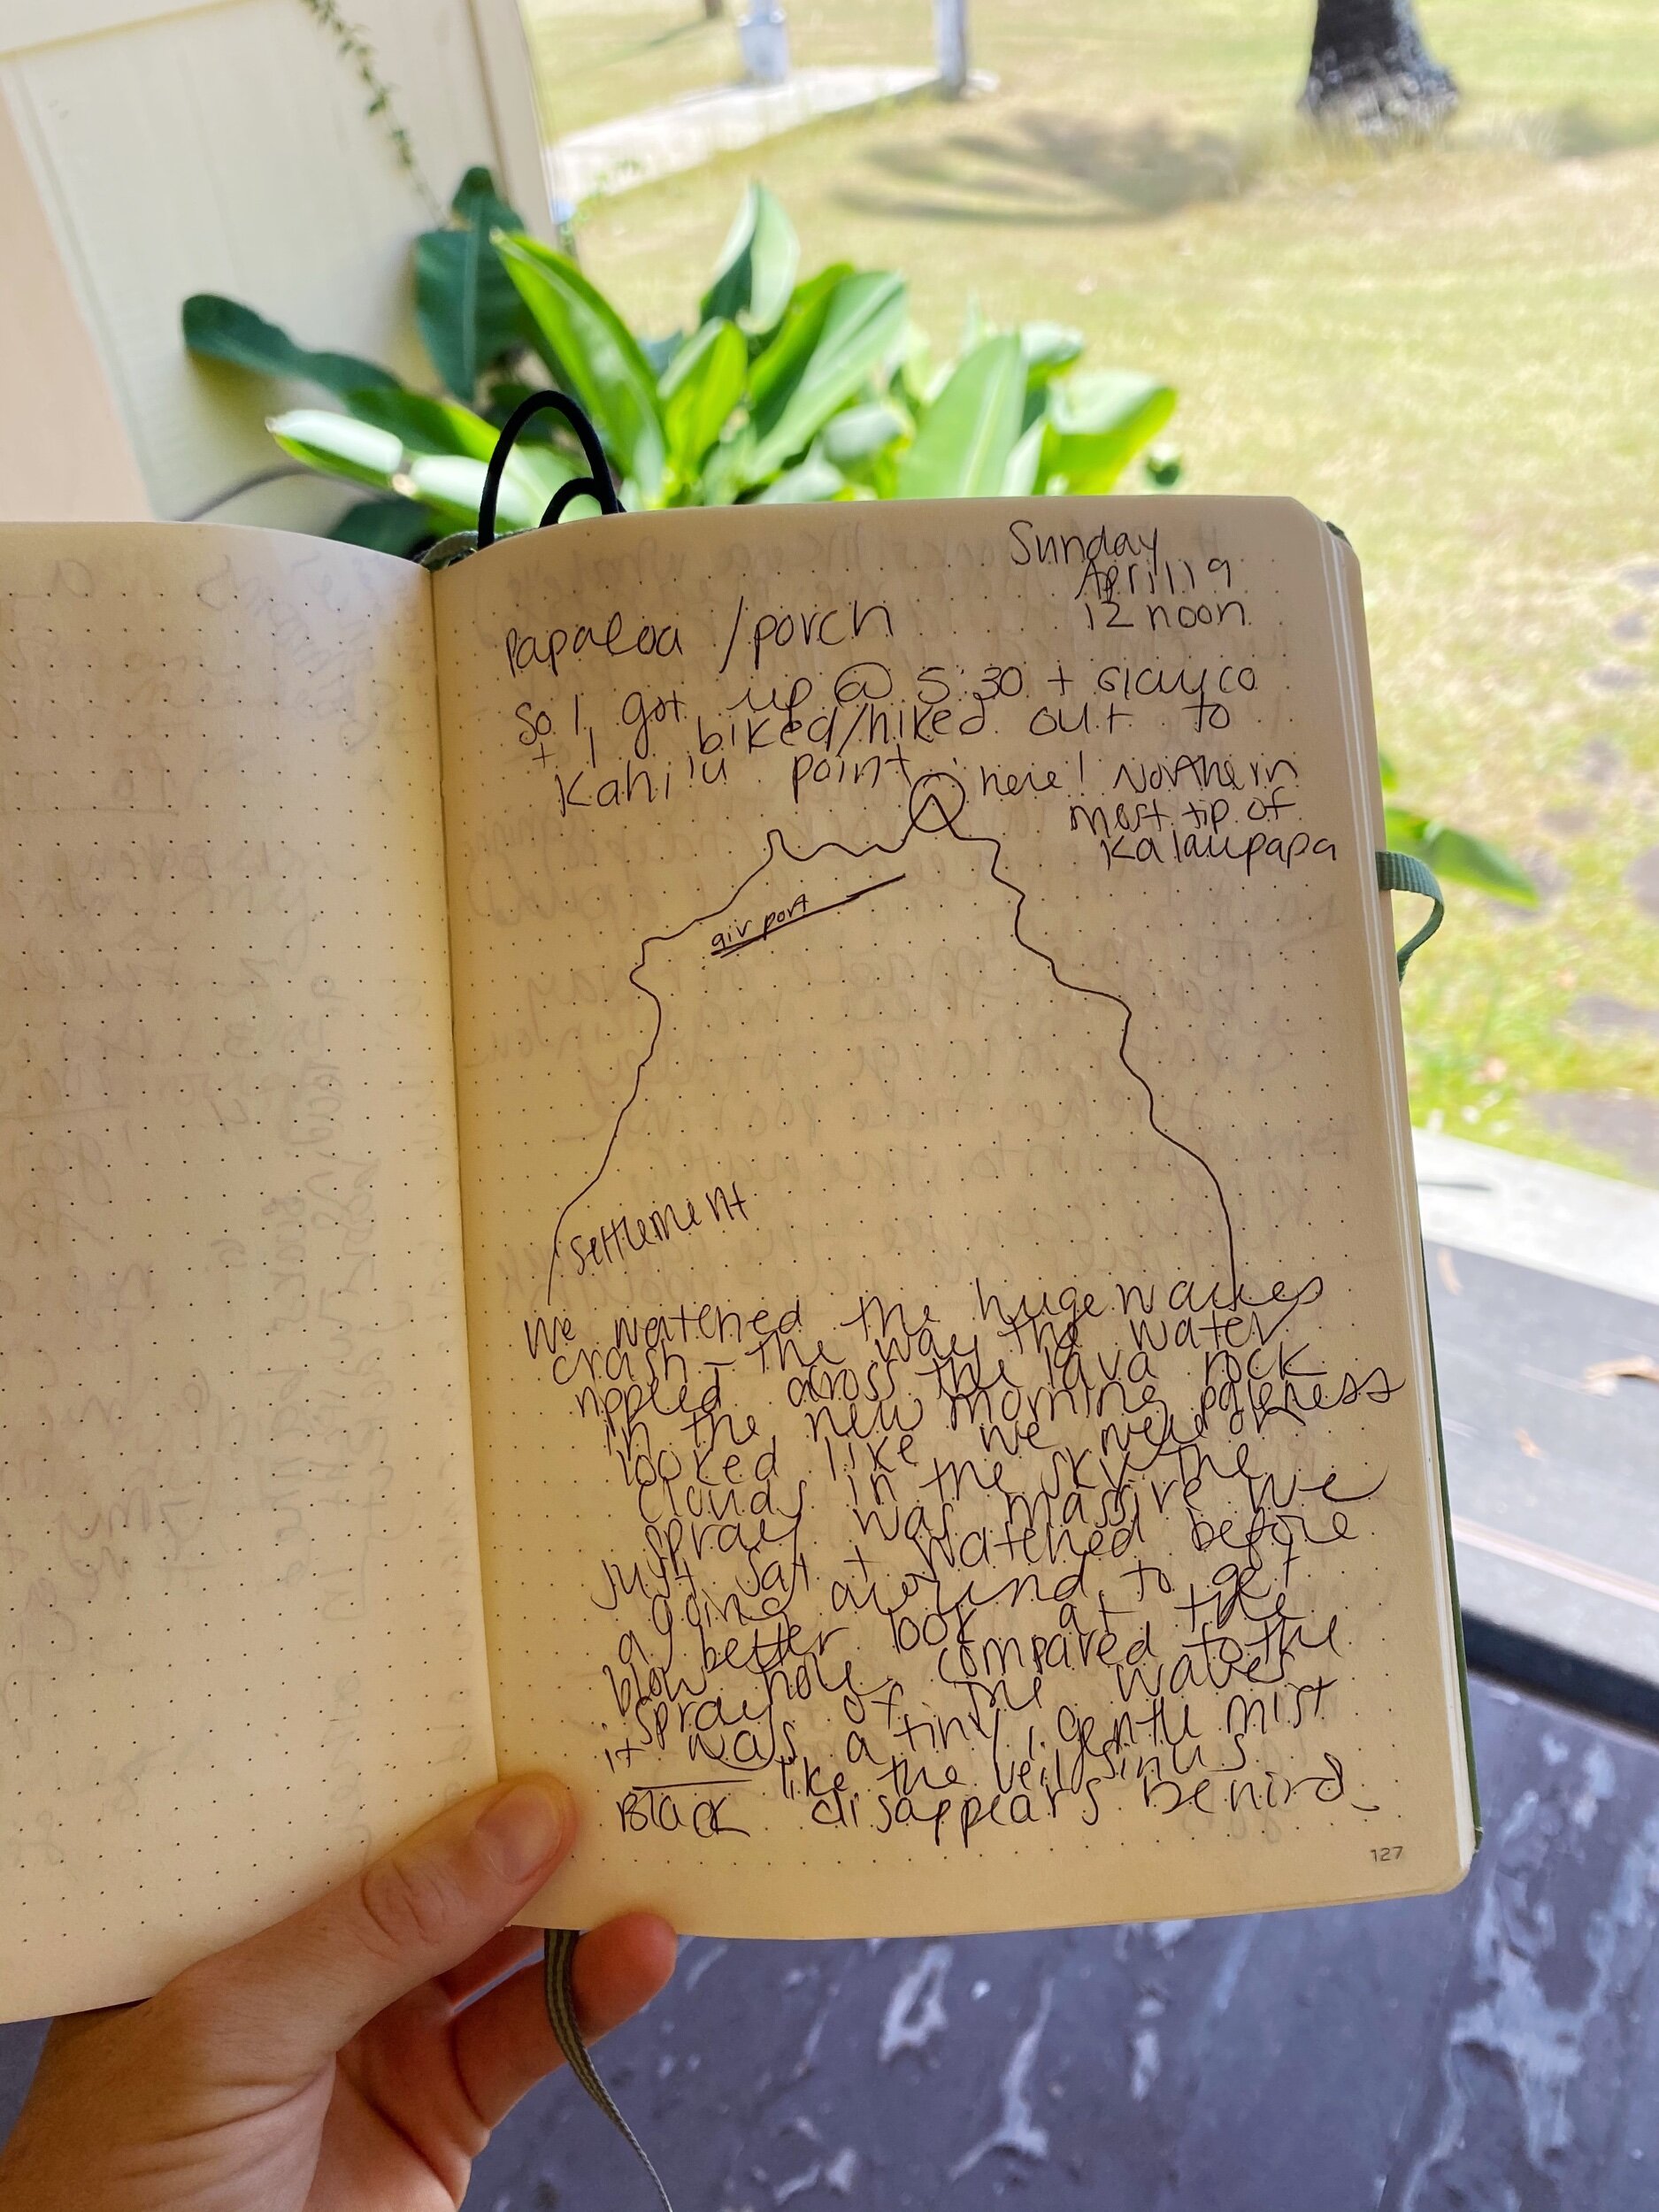 Sunday
April 19
12 noon
Papaloa / porch
So I got up @ 5:30 +
+ I biked/hiked out to
Kahi'u point
here! Northern
most tip of
Kalaupapa
airport
Settlement
We watched the huge waves
crash - the way the water
rippled aross the lava rock
in the new morning paleness
looked like we were
clouds in the sky. The
spray was massive. We
just sat + watched before
going around to get
a better look at the
blow hole. Compared to the
spray of the waves
it was a tiny, gentle mist
like the veil Sirius
Black disappears behind.
127